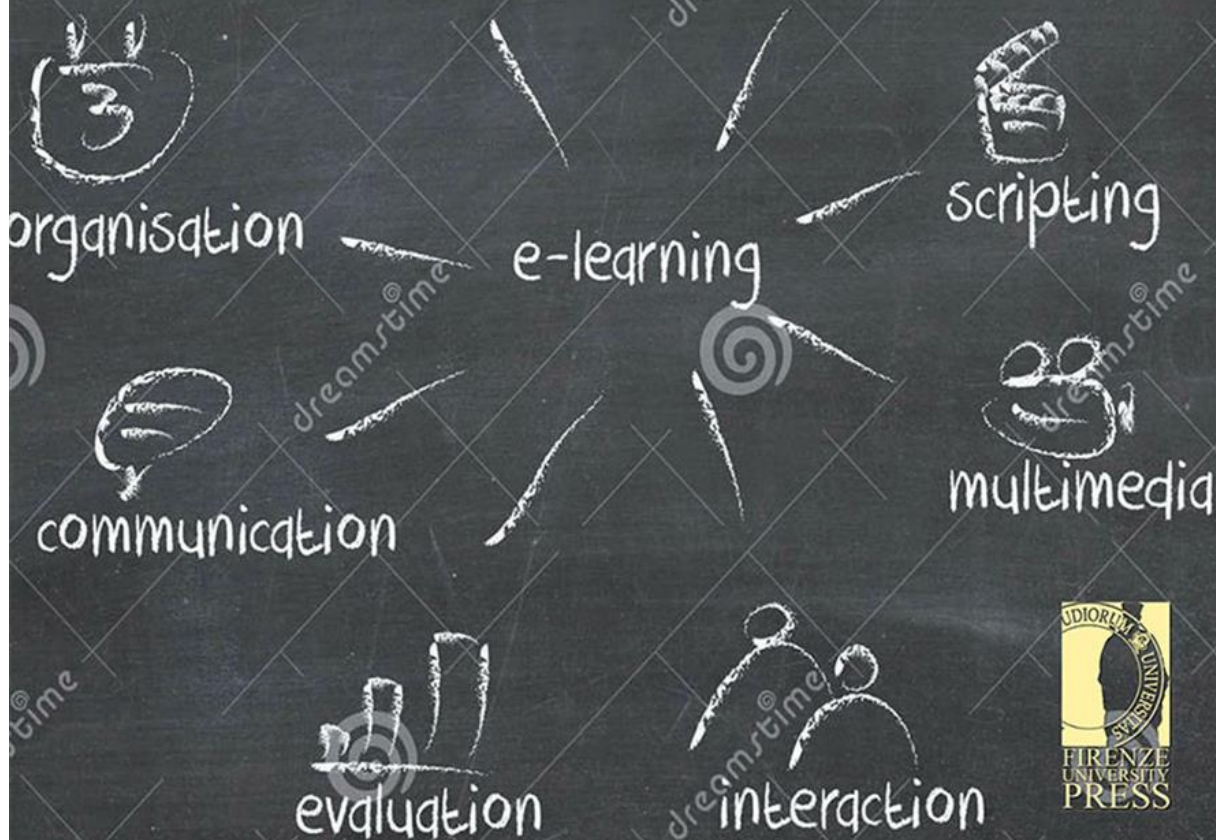 3
organisation
e-learning
scripting
communication
multimedia
evaluation
interaction
dreamstime
dreamstime
dreamstime
UDIORUM
UNIVERSITAS
FIRENZE
UNIVERSITY
PRESS